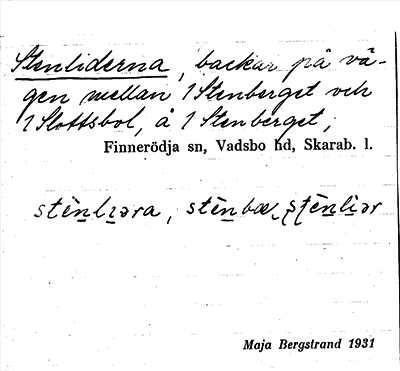 Stenliderna, backar på vä-
gen mellan 1 Stenberget och
1 Slottsbol, å 1 Stenberget;
Finnerödja sn, Vadsbo hd, Skarab. l.
stènlɪəra, stènbæ
Maja Bergstrand 1931